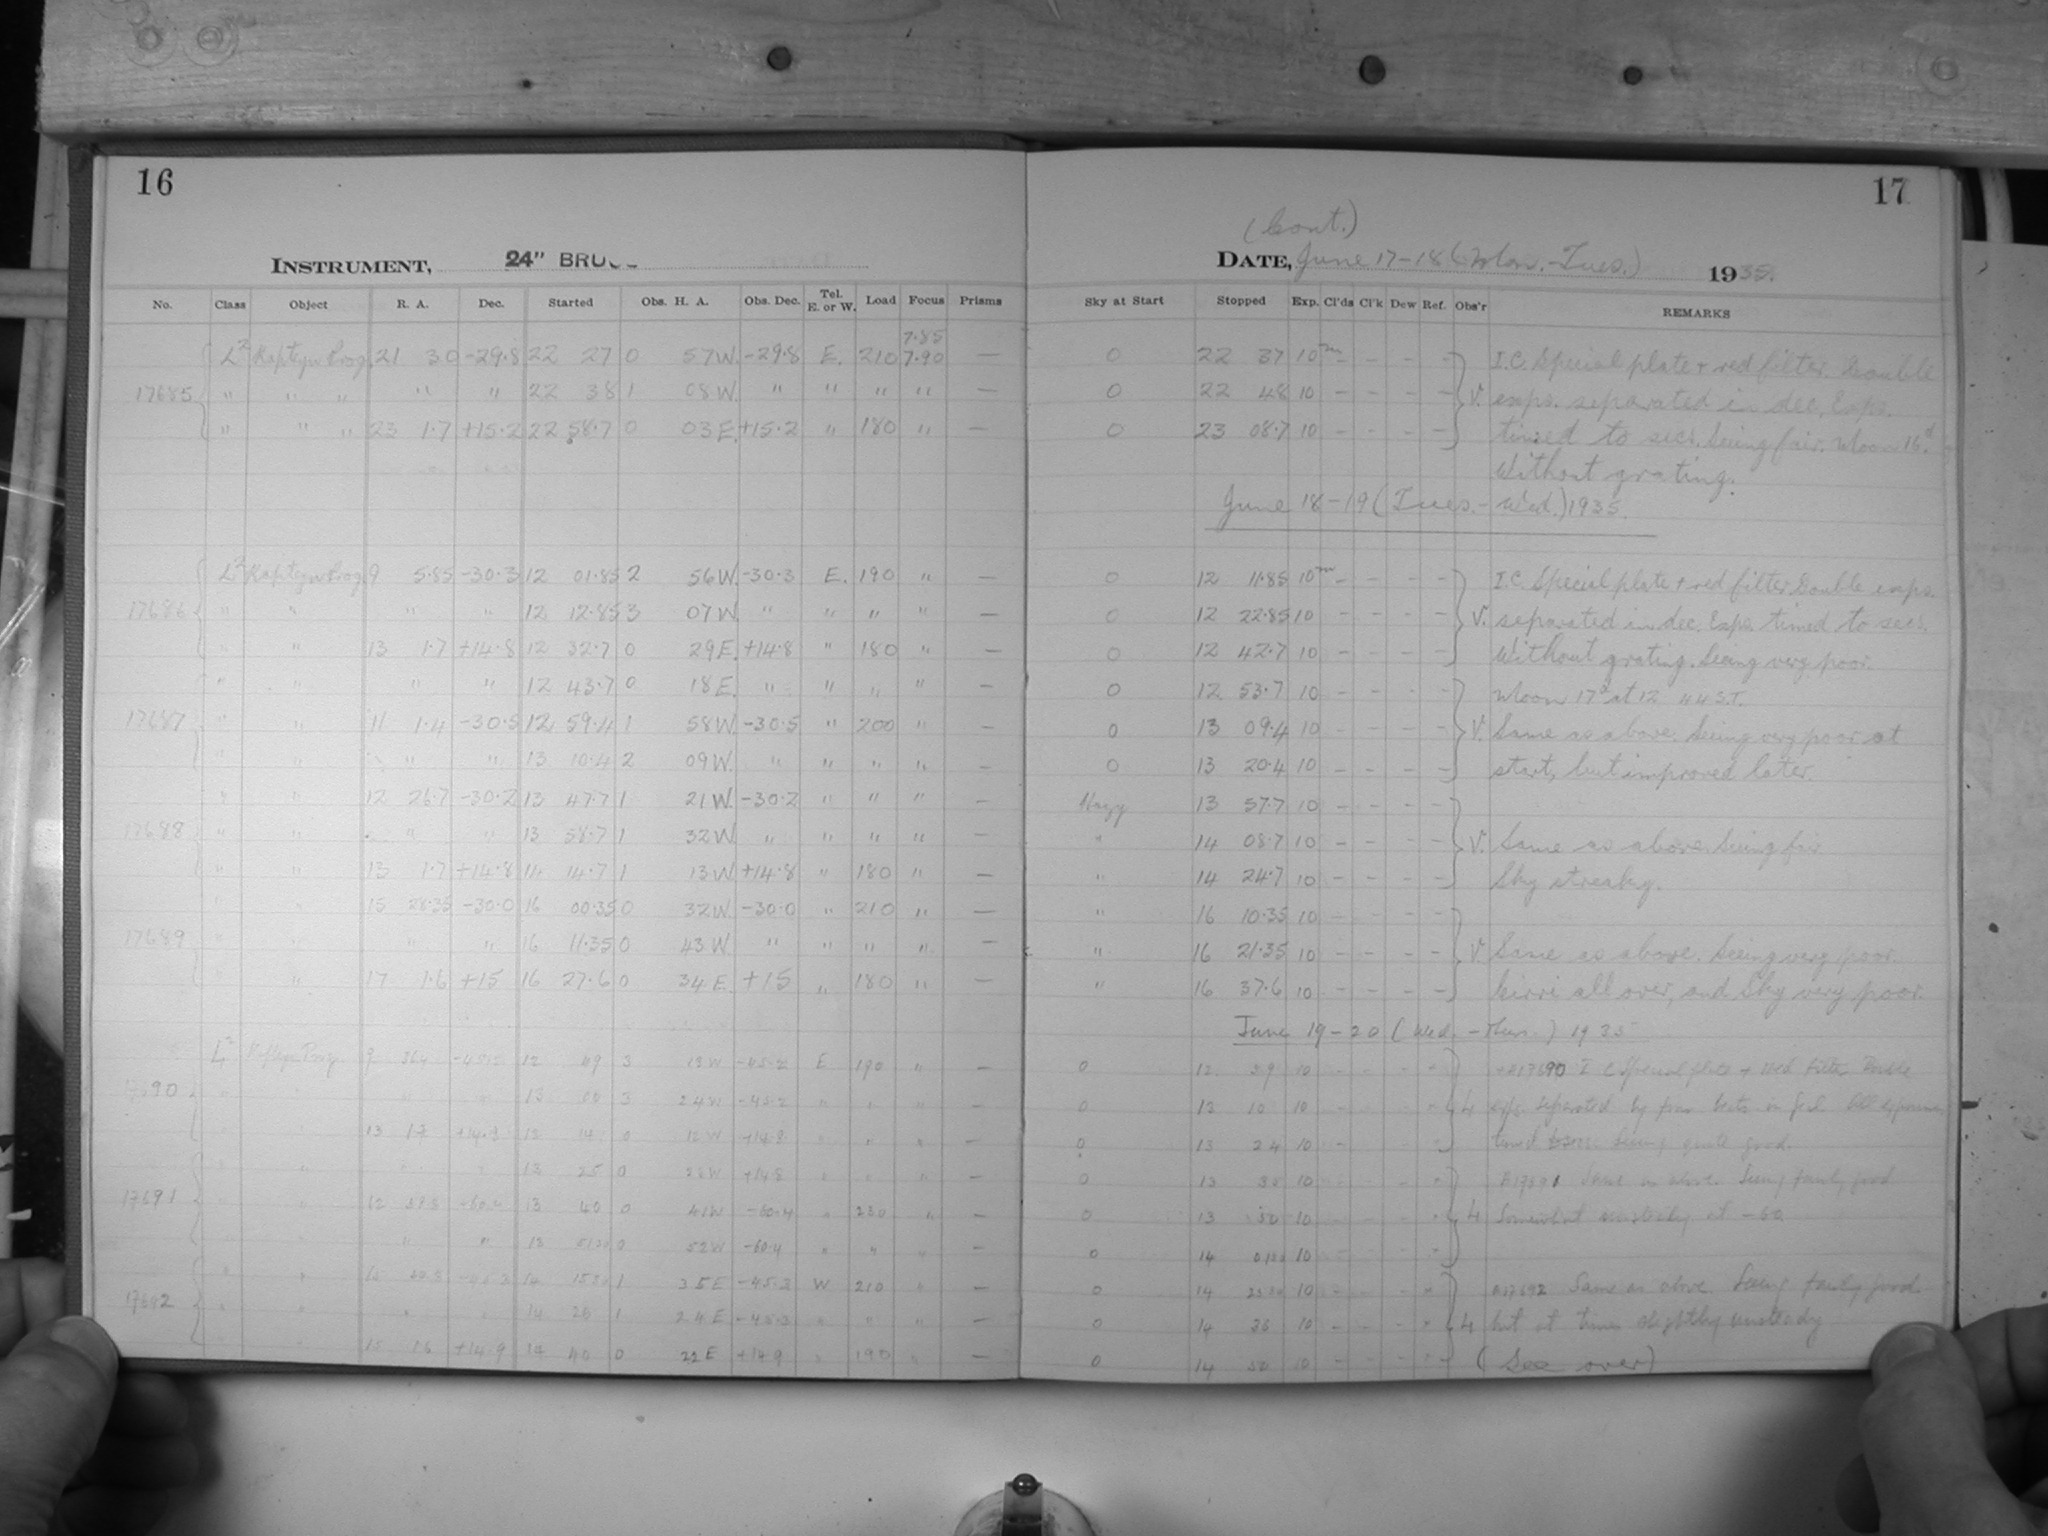 16
INSTRUMENT, 24" BRUCE
No. Class Object R. A. Dec. Started Obs. H. A. Obs. Dec. Tel. E. or W. Load Focus Prisms
7.85
L² Kapteyn Prog. 21 30 -29.8 22 27 0 57 W. -29.8 E. 210 7.90 —
17685 " " " " " 22 38 1 08 W. " " " " —
" " " 23 1.7 +15.2 22 58.7 0 03 E. +15.2 " 180 " —
L² Kapteyn Prog. 9 5.85 -30.3 12 01.85 2 56 W. -30.3 E. 190 " —
17686 " " " " 12 12.85 3 07 W. " " " " —
" " 13 1.7 +14.8 12 32.7 0 29 E. +14.8 " 180 " —
" " " " 12 43.7 0 18 E. " " " " —
17687 " " 11 1.4 -30.5 12 59.4 1 58 W. -30.5 " 200 " —
" " " " 13 10.4 2 09 W. " " " " —
" " 12 26.7 -30.2 13 47.7 1 21 W. -30.2 " " " —
17688 " " " " 13 58.7 1 32 W. " " " " —
" " 13 1.7 +14.8 14 14.7 1 13 W. +14.8 " 180 " —
" " 15 28.35 -30.0 16 00.35 0 32 W. -30.0 " 210 " —
17689 " " " " 16 11.35 0 43 W. " " " " —
" " 17 1.6 +15 16 27.6 0 34 E. +15 " 180 " —
L² Kapteyn Prog. 9 12 49 3 13 W -45.2 E 190 " —
17690 13 00 3 24 W -45.2 " " " —
13 1.7 +14.8 13 14 0 12 W +14.8 " " " —
13 25 0 23 W +14.8 " " " —
17691 12 -60.4 13 40 0 41 W -60.4 " 230 " —
" " 13 0 52 W -60.4 " " " —
14 1 35 E -45.3 W 210 " —
17692 14 26 1 24 E -45.3 " " " —
15 1.6 +14.9 14 40 0 22 E +14.9 " 190 " —
17
(Cont.)
DATE, June 17-18 (Mon.-Tues.) 1935.
Sky at Start Stopped Exp. Cl'ds Cl'k Dew Ref. Obs'r REMARKS
0 22 37 10ᵐ - - - - I.C. Special plate + red filter. Double
0 22 48 10 - - - - V. exps. separated in dec. Exps.
0 23 08.7 10 - - - - timed to secs. Seeing fair. Moon 16ᵈ.
Without grating.
June 18-19 (Tues.-Wed.) 1935.
0 12 11.85 10ᵐ - - - - I.C. Special plate + red filter Double exps.
0 12 22.85 10 - - - - V. separated in dec. Exps. timed to secs.
0 12 42.7 10 - - - - Without grating. Seeing very poor.
0 12 53.7 10 - - - - Moon 17ᵈ at 12 44 S.T.
0 13 09.4 10 - - - - V. Same as above. Seeing very poor at
0 13 20.4 10 - - - - start, but improved later.
Hazy 13 57.7 10 - - - -
" 14 08.7 10 - - - - V. Same as above. Seeing fair.
" 14 24.7 10 - - - - Sky streaky.
" 16 10.35 10 - - - -
" 16 21.35 10 - - - - V. Same as above. Seeing very poor.
" 16 37.6 10 - - - - Cirri all over, and Sky very poor.
June 19-20 (Wed.-Thurs.) 1935
0 12 59 10 - - - A17690 I C Special plate + red filter Double
0 13 10 10 - - - exps. separated by in decl. All exposures
0 13 24 10 - - - timed Seeing quite good.
0 13 35 10 - - - A17691 Same as above. Seeing fairly good
0 13 50 10 - - - Somewhat unsteady at -60
0 14 10 - - -
0 14 10 - - - A17692 Same as above. Seeing fairly good
0 14 36 10 - - - but at times slightly unsteady
0 14 50 10 - - - (See over)